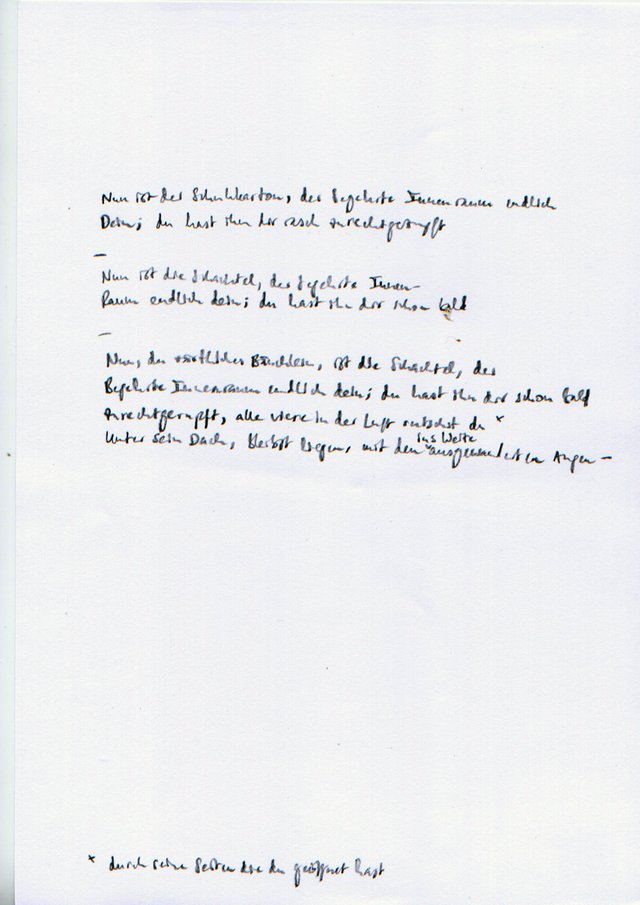 Nun ist der Schuhkarton, der begehrte Innenraum endlich
Dein; du hast ihn dir rasch zurechtgerupft
—
Nun ist die Schachtel, der begehrte Innen-
Raum endlich dein; du hast ihn dir schon bald
—
Nun, du, ist die Schachtel, der
Begehrte Innenraum endlich dein; du hast ihn dir schon bald
Zurechtgerupft, alle viere in der Luft rutschst du x
Unter sein Dach, bleibst liegen, mit den ins Weite ausgewanderten Augen —
x durch seine Seiten die du geöffnet hast